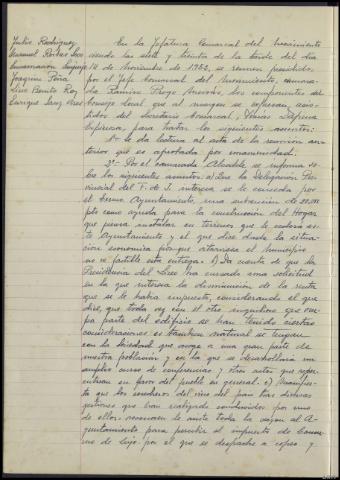 Julio Rodríguez
Manuel Ribas Seco
Encarnación
Joaquín Peña
Luis Benito Rey
Enrique Sanz Ares
En la Jefatura Comarcal del Movimiento
siendo las siete y treinta de la tarde del día
12 de Noviembre de 1952, se reunen presididos
por el Jefe Comarcal del Movimiento, camara-
da Ramiro los componentes del
Consejo local que al margen se expresan, asis-
tidos del Secretario Comarcal,
Espinosa, para tratar los siguientes asuntos:
1º Se da lectura al acta de la reunion an-
terior que es aprobada por unanimidad.
2º Por el camarada Alcalde se informa so-
bre los siguientes asuntos: a) Que la Delegación Pro-
vincial del F. de J. interesa se le conceda por
el Excmo Ayuntamiento, una subvencion de
pts como ayuda para la construccion del Hogar
que piensa instalar en terrenos que le cederia es-
te Ayuntamiento y el que dice dada la situa-
cion economica porque atraviesa el municipio
no es factible esta entrega. b) Da cuenta de que la
Presidencia del Liceo ha cursado una solicitud
en la que interesa la disminucion de la renta
que se le habia impuesto, considerando el que
dice, que toda vez con el otro inquilino que ocu-
pa parte del edificio se han tenido ciertas
consideraciones es tambien natural se tengan
con la Sociedad que acoge a una gran parte de
nuestra población y en la que se desarrollará un
amplio curso de conferencias y otros actos que reper-
cutiran en favor del pueblo en general. c) Manifies-
ta que los cosecheros del vino del pais han diversas
gestiones que han realizado conducidos por uno
de ellos, reconocen le asiste toda la razon al A-
yuntamiento para percibir el impuesto de Consu-
mo de lujo por el que se despache a copas y